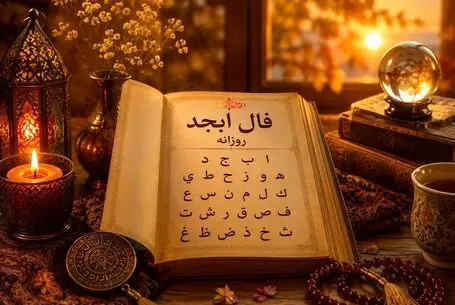 فال ابجد
روزانه
ا ب ج د
ه و ز ح ط ي
ك ل م ن س ع
ف ص ق ر ش ت
ث خ ذ ض ظ غ